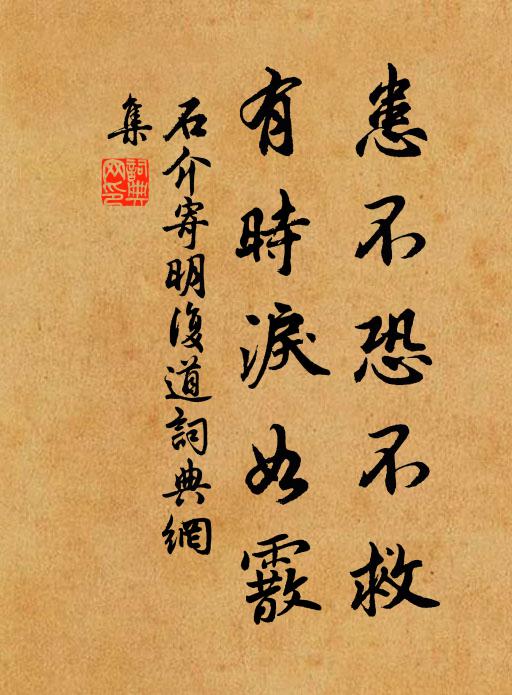 患不恐不救
有時淚如霰
石介寄明復道詞典網
集
詞典網印